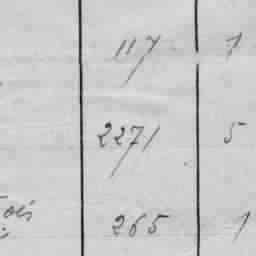 117 1
2271 5
265 1